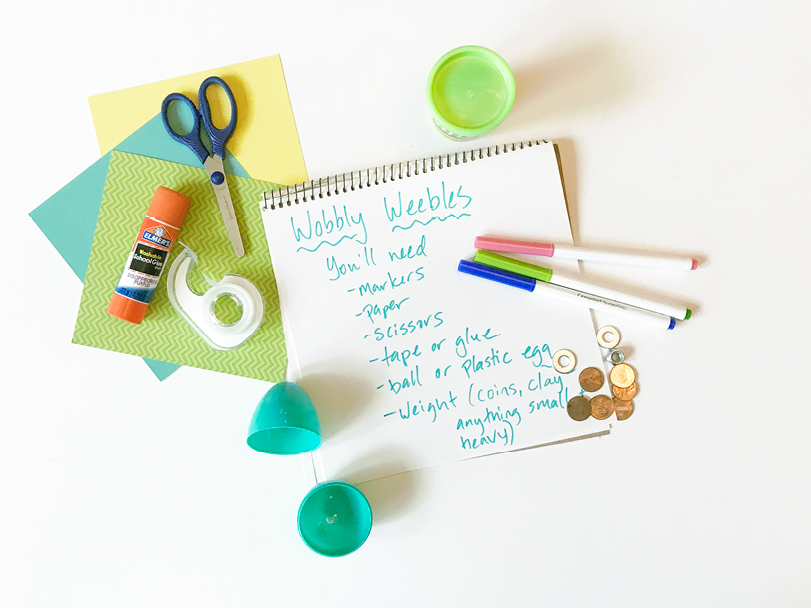 Wobbly Weebles
You'll need
- markers
- paper
- scissors
- tape or glue
- ball or plastic egg
- weight (coins, clay,
anything small +
heavy)
ELMER'S
Washable
School Glue